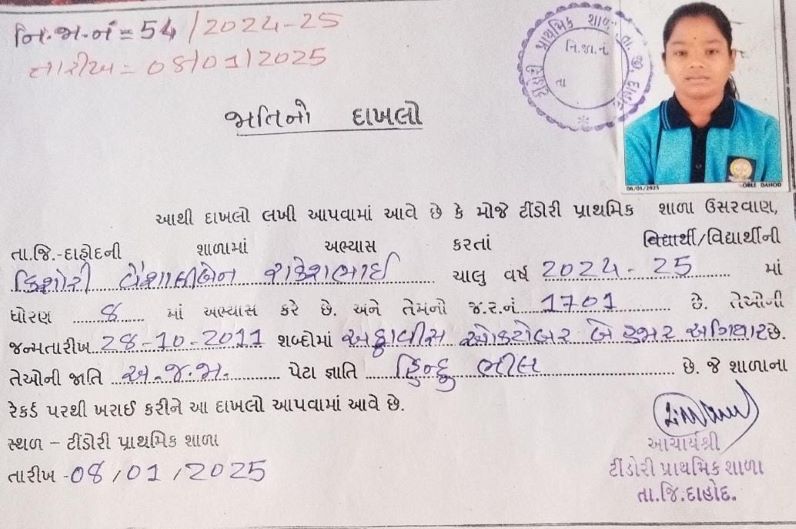 નિ.જા.નં = 54/2024-25
તારીખ = 08/01/2025
ટીંડોરી પ્રાથમિક શાળા તા.જી. દાહોદ
નિ.જા.નં
તા
06/01/2025
DAHOD
જાતિનો દાખલો
આથી દાખલો લખી આપવામાં આવે છે કે મોજે ટીંડોરી પ્રાથમિક શાળા ઉસરવાણ,
તા.જિ.-દાહોદની શાળામાં અભ્યાસ કરતાં વિદ્યાર્થી/વિદ્યાર્થીની
કિશોરી વૈશાલીબેન રાકેશભાઈ ચાલુ વર્ષ 2024-25 માં
ધોરણ 8 માં અભ્યાસ કરે છે. અને તેમનો જ.ર.નં 1701 છે. તેઓની
જન્મતારીખ 28-10-2011 શબ્દોમાં અઠ્ઠાવીસ ઓક્ટોબર બે હજાર અગિયાર છે.
તેઓની જાતિ અ.જ.જા. પેટા જ્ઞાતિ હિન્દુ ભીલ છે. જે શાળાના
રેકર્ડ પરથી ખરાઈ કરીને આ દાખલો આપવામાં આવે છે.
સ્થળ – ટીંડોરી પ્રાથમિક શાળા
તારીખ -08/01/2025
આચાર્યશ્રી
ટીંડોરી પ્રાથમિક શાળા
તા.જિ.દાહોદ.